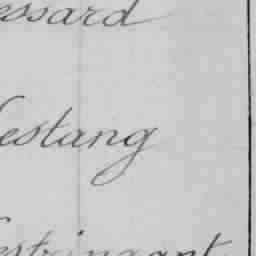 essard
Lestang
Lestringant